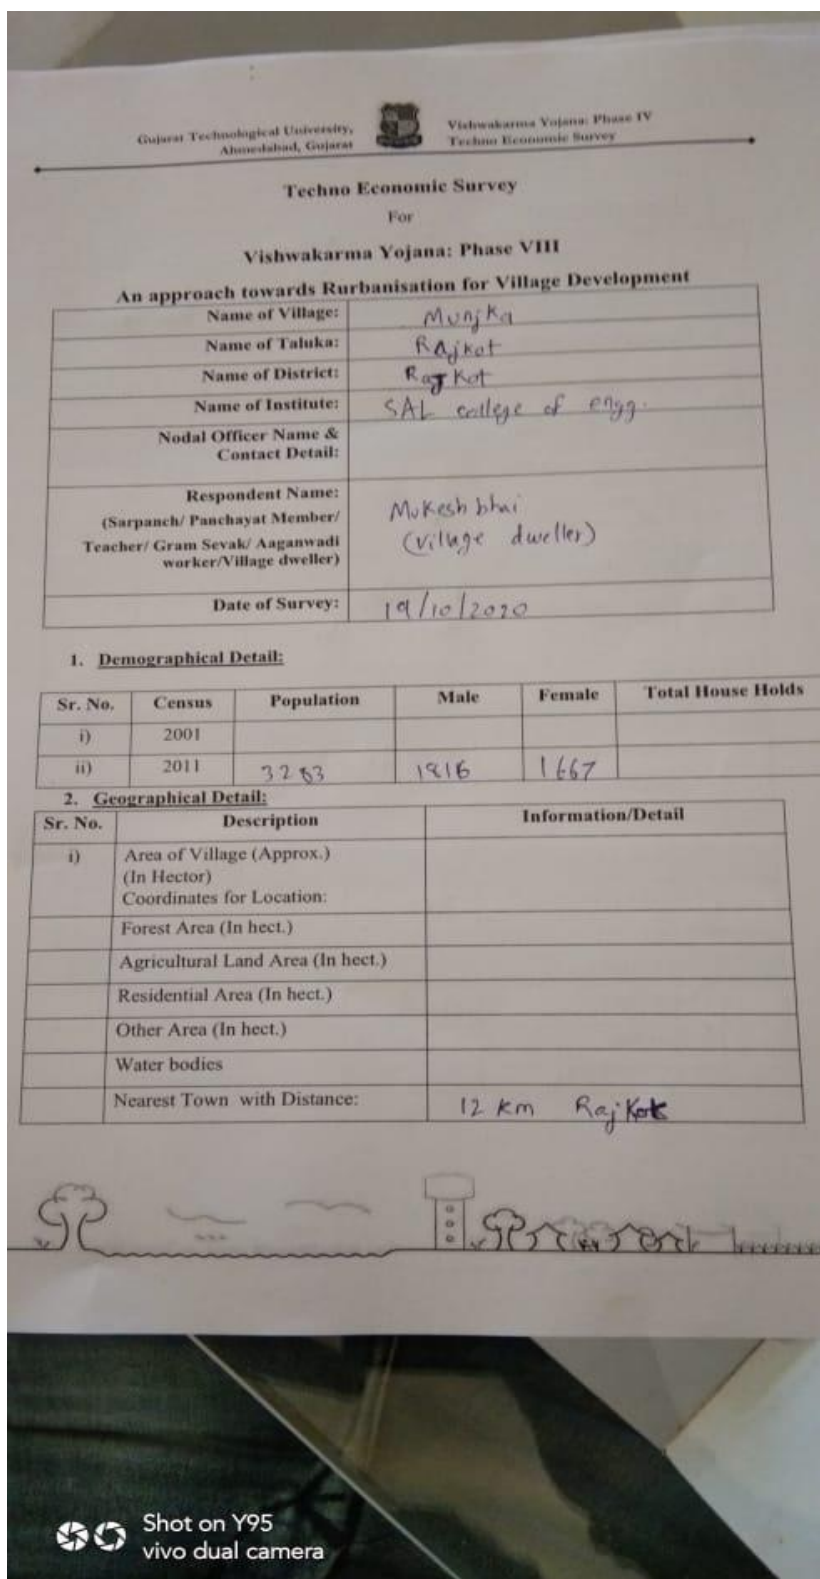 Gujarat Technological University, Ahmedabad, Gujarat
Vishwakarma Yojana: Phase IV
Techno Economic Survey
Techno Economic Survey
For
Vishwakarma Yojana: Phase VIII
An approach towards Rurbanisation for Village Development
Name of Village: Munjka
Name of Taluka: RAjkot
Name of District: Rajkot
Name of Institute: SAL college of engg.
Nodal Officer Name &
Contact Detail:
Respondent Name:
(Sarpanch/ Panchayat Member/
Teacher/ Gram Sevak/ Aaganwadi
worker/Village dweller)
Mukesh bhai
(village dweller)
Date of Survey: 19/10/2020
1. Demographical Detail:
Sr. No. Census Population Male Female Total House Holds
i) 2001
ii) 2011 1667
2. Geographical Detail:
Sr. No. Description Information/Detail
i) Area of Village (Approx.)
(In Hector)
Coordinates for Location:
Forest Area (In hect.)
Agricultural Land Area (In hect.)
Residential Area (In hect.)
Other Area (In hect.)
Water bodies
Nearest Town with Distance: 12 km Rajkot
Shot on Y95
vivo dual camera